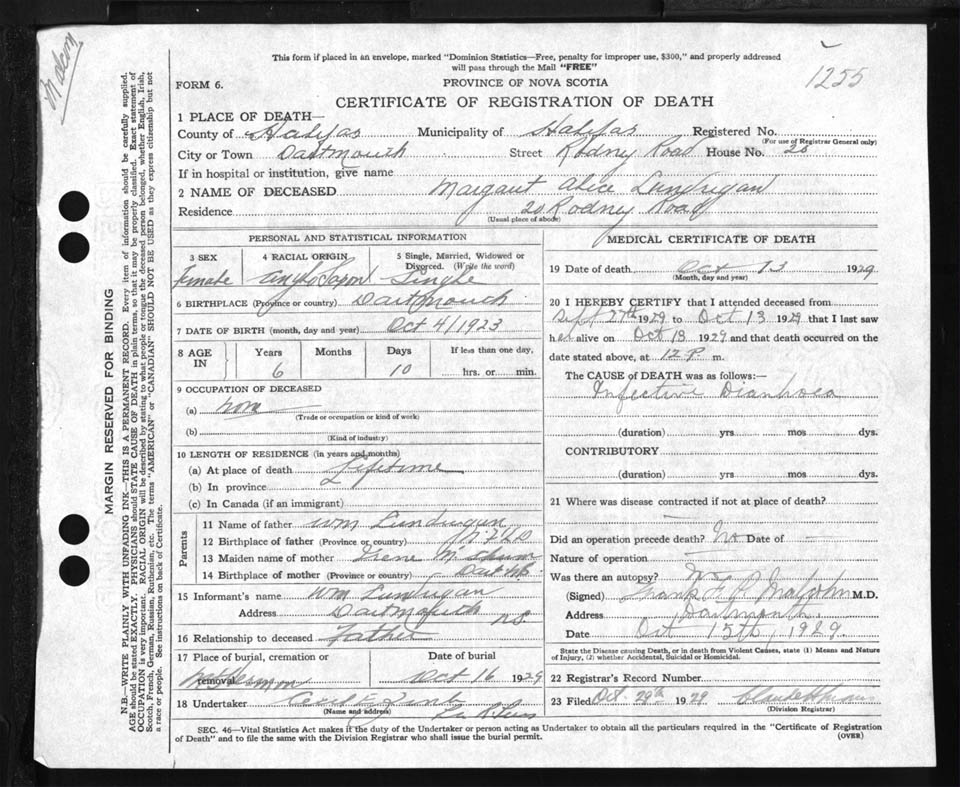 This form if placed in an envelope, marked "Dominion Statistics—Free, penalty for improper use, $300," and properly addressed
will pass through the Mail "FREE"
1255
FORM 6.
PROVINCE OF NOVA SCOTIA
CERTIFICATE OF REGISTRATION OF DEATH
1 PLACE OF DEATH—
County of Halifax Municipality of Halifax Registered No.
(For use of Registrar General only)
City or Town Dartmouth Street Rodney Road House No. 20
If in hospital or institution, give name
2 NAME OF DECEASED Margaret Alice Lundrigan
Residence 20 Rodney Road
(Usual place of abode)
PERSONAL AND STATISTICAL INFORMATION
3 SEX 4 RACIAL ORIGIN 5 Single, Married, Widowed or
Divorced. (Write the word)
Female Single
6 BIRTHPLACE (Province or country) Dartmouth
7 DATE OF BIRTH (month, day and year) Oct 4/1923
8 AGE IN Years Months Days If less than one day,
6 10 hrs. or min.
9 OCCUPATION OF DECEASED
(a) none
(Trade or occupation or kind of work)
(b)
(Kind of industry)
10 LENGTH OF RESIDENCE (in years and months)
(a) At place of death Lifetime
(b) In province
(c) In Canada (if an immigrant)
Parents
11 Name of father Wm Lundrigan
12 Birthplace of father (Province or country) NFLD
13 Maiden name of mother Irene
14 Birthplace of mother (Province or country)
15 Informant's name Wm Lundrigan
Address Dartmouth N.S.
16 Relationship to deceased Father
17 Place of burial, cremation or removal Date of burial
Oct 16 1929
18 Undertaker
(Name and address)
MEDICAL CERTIFICATE OF DEATH
19 Date of death Oct 13 1929
(Month, day and year)
20 I HEREBY CERTIFY that I attended deceased from
Sept 27th 1929 to Oct 13 1929 that I last saw
her alive on Oct 13 1929 and that death occurred on the
date stated above, at 12 P m.
The CAUSE of DEATH was as follows:—
Infective Diarrhoea
(duration) yrs mos dys.
CONTRIBUTORY
(duration) yrs mos dys.
21 Where was disease contracted if not at place of death?
Did an operation precede death? No Date of —
Nature of operation
Was there an autopsy? No
(Signed) Frank M.D.
Address Dartmouth
Date Oct 15th, 1929.
State the Disease causing Death, or in death from Violent Causes, state (1) Means and Nature
of Injury, (2) whether Accidental, Suicidal or Homicidal.
22 Registrar's Record Number
23 Filed Oct. 29th 1929
(Division Registrar)
SEC. 46—Vital Statistics Act makes it the duty of the Undertaker or person acting as Undertaker to obtain all the particulars required in the "Certificate of Registration
of Death" and to file the same with the Division Registrar who shall issue the burial permit.
(OVER)
MARGIN RESERVED FOR BINDING
N.B.—WRITE PLAINLY WITH UNFADING INK—THIS IS A PERMANENT RECORD. Every item of information should be carefully supplied.
AGE should be stated EXACTLY. PHYSICIANS should STATE CAUSE OF DEATH in plain terms, so that it may be properly classified. Exact statement of
OCCUPATION is very important. RACIAL ORIGIN will be described by stating to what people or tongue the deceased person belonged, whether English, Irish,
Scotch, French, German, Russian, Ruthenian, etc. The terms "AMERICAN" or "CANADIAN" SHOULD NOT BE USED as they express citizenship but not
a race or people. See instructions on back of Certificate.